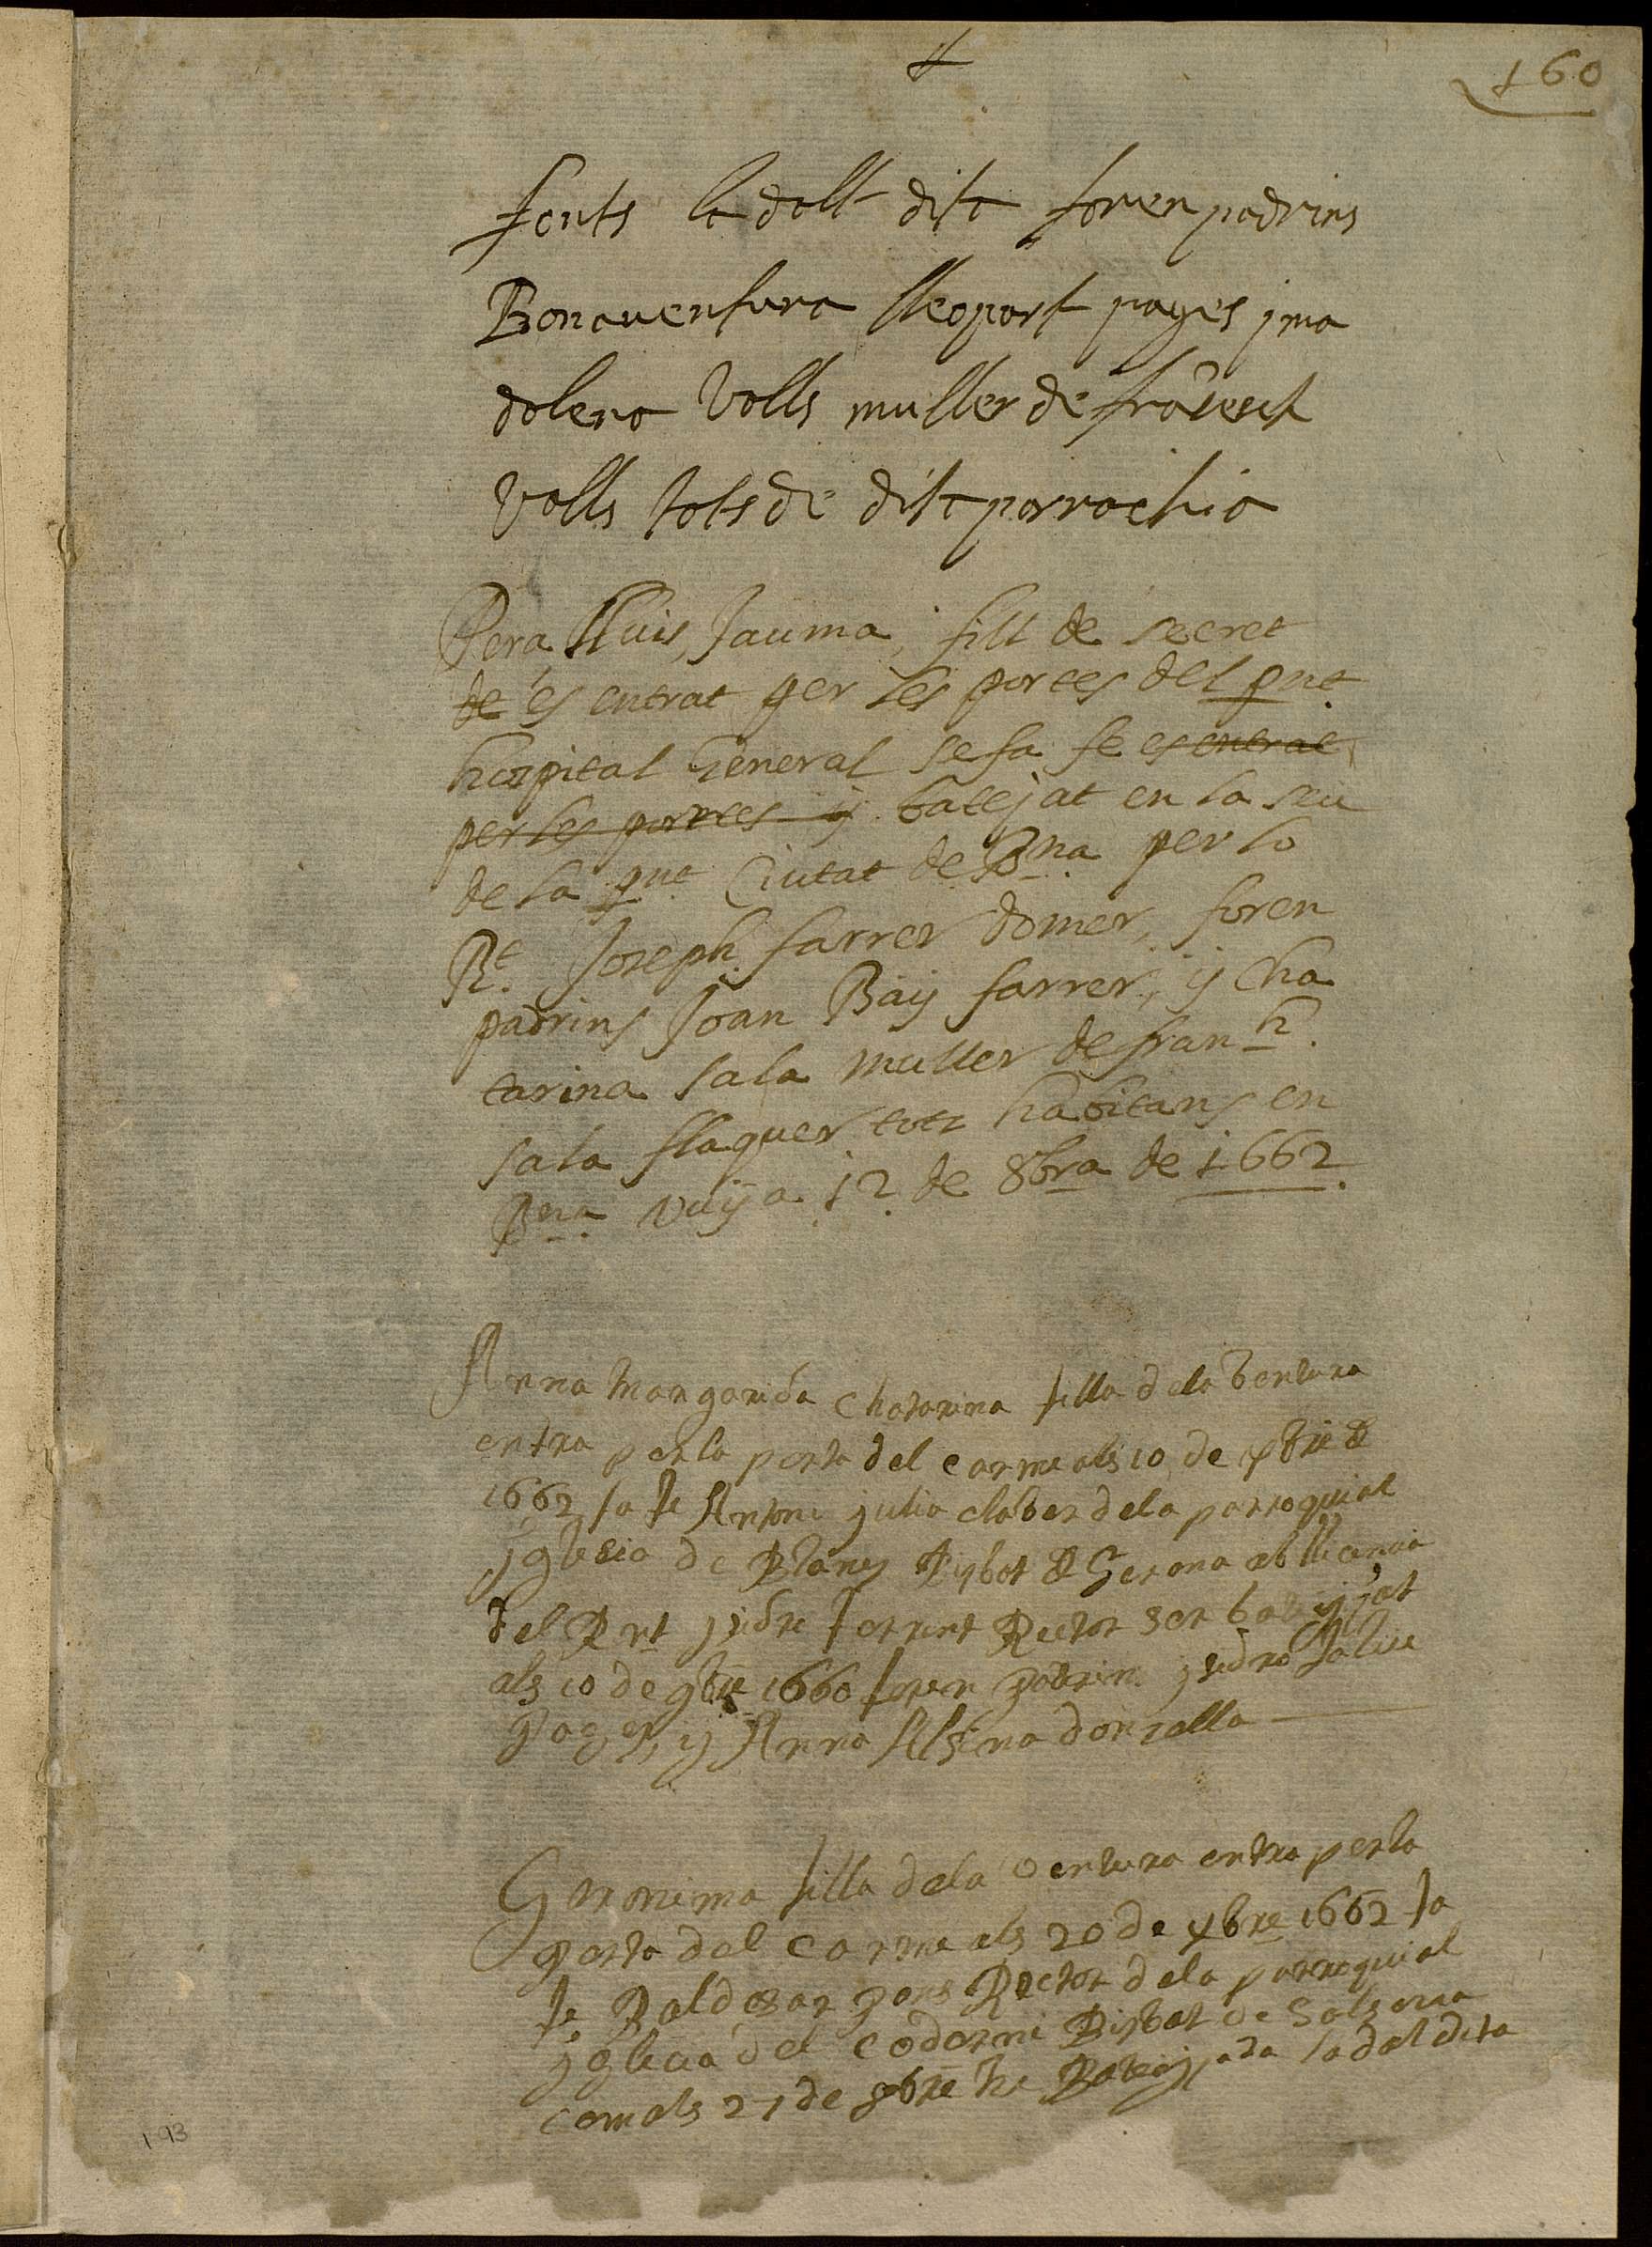 160
fonts la dalt dita foren padrins
Bonaventura lleopart pages y ma
dalena Valls muller de frãsesch
Valls tots de dita parrochia
Pera, lluis, Jauma, fill de secret
de es entrat per les portes del pnt
hospital General se fa fe es entrat
per les portes y batejat en la seu
de la pnt Ciutat de Bna per lo
Rt. Joseph farrer domer, foren
padrins Joan Baÿ farrer, y Cha
tarina sala muller de franh.
sala flaquer tots habitans en
Bna vuÿ a 12 de 8bra de 1662.
Anna Margarida Chatarina filla dela Ventura
entra per la porta del carme als 10 de xbre de
1662 fa fe Antoni julia claber dela parroquial
yglesia de Blanes Bisbat de Gerona ab llicencia
del Rnt ysidre ferrant Rector ser batejjat
als 10 de 9bre 1660 foren padrins ysidro Saliu
pages, y Anna Alsina donzella
Geronima filla dela Ventura entra per la
porta del carme als 20 de xbre 1662 fa
fe Baldesar pons Rector dela parroquial
yglecia del codorni Bisbat de Solsona
com als 21 de 8bre he Batejjada la dal dita
193